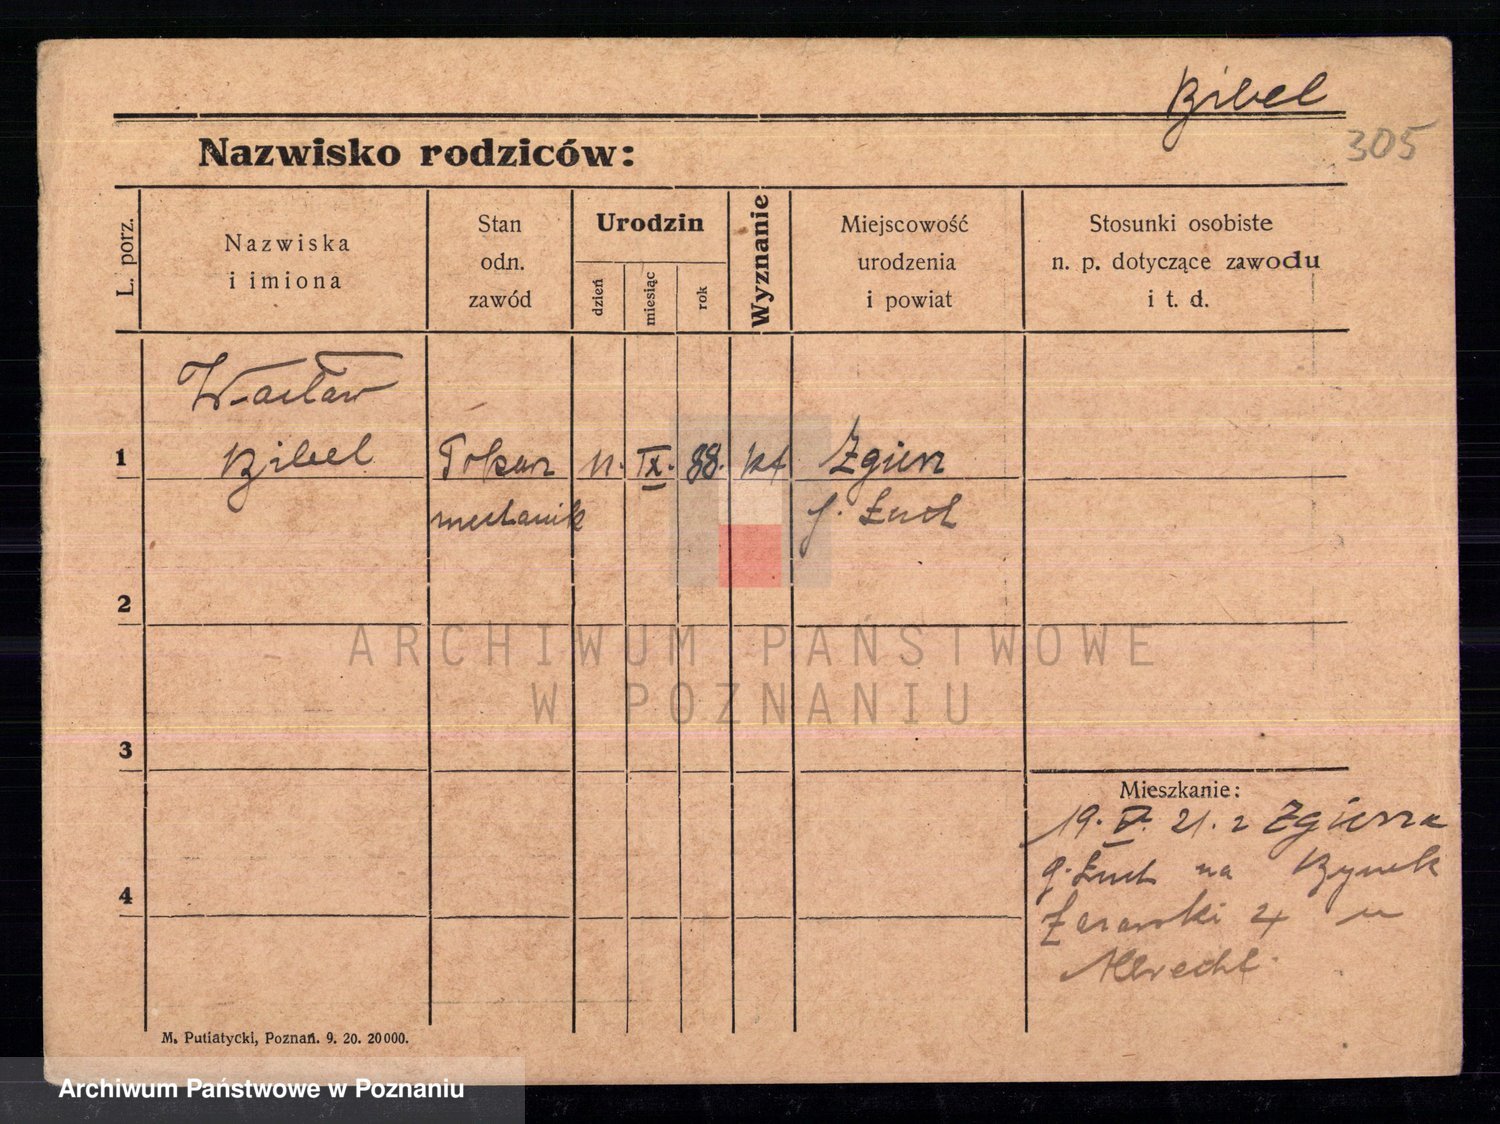 Bibel
305
Nazwisko rodziców:
L. porz.
Nazwiska
i imiona
Stan
odn.
zawód
Urodzin
dzień
miesiąc
rok
Wyznanie
Miejscowość
urodzenia
i powiat
Stosunki osobiste
n. p. dotyczące zawodu
i t. d.
Wacław
1 Bibel Tokarz 11. IX. 88. kt Zgierz
mechanik
2
3
4
Mieszkanie:
19. V. 21. z Zgierza
na Rynek
4 u
Albrecht
M. Putiatycki, Poznań. 9. 20. 20000.
ARCHIWUM PAŃSTWOWE
W POZNANIU
Archiwum Państwowe w Poznaniu